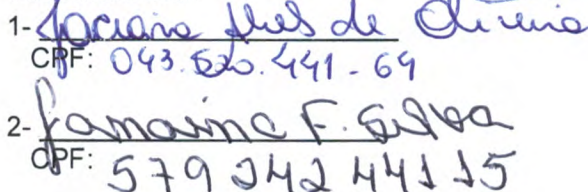 1- Jaciana Alves de Oliveira
CPF: 043.520.441-69
2- Janaina F. Silva
CPF: 579 242 441 15